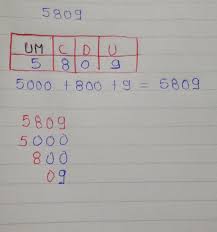 5809
UM C D U
5 8 0 9
5000 + 800 + 9 = 5809
5809
5000
800
09